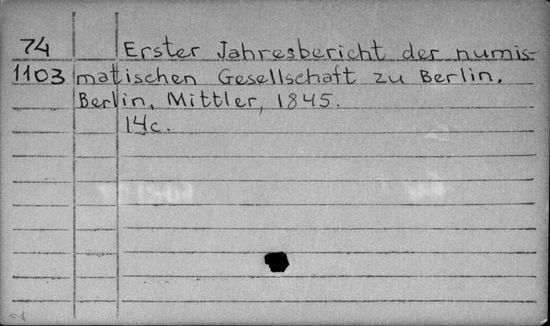 74 Erster Jahresbericht der numis-
1103 matischen Gesellschaft zu Berlin.
Berlin, Mittler, 1845.
14c.